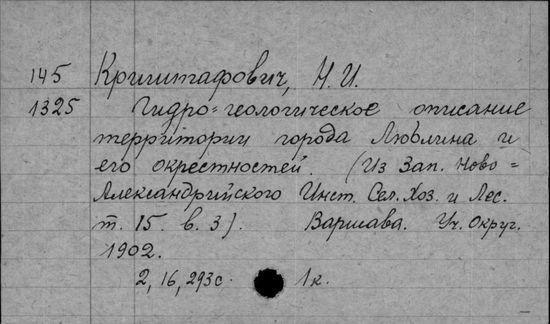 145 Криштафович, Н. И.
1325 Гидро-геологическое описание
территории города Люблина и
его окрестностей. (Из Зап. Ново=
Александрийского Инст. Сел. Хоз. и Лес.
т. 15. в. 3). Варшава. Уч. Округ.
1902.
2, 16, 293 с. 1 к.